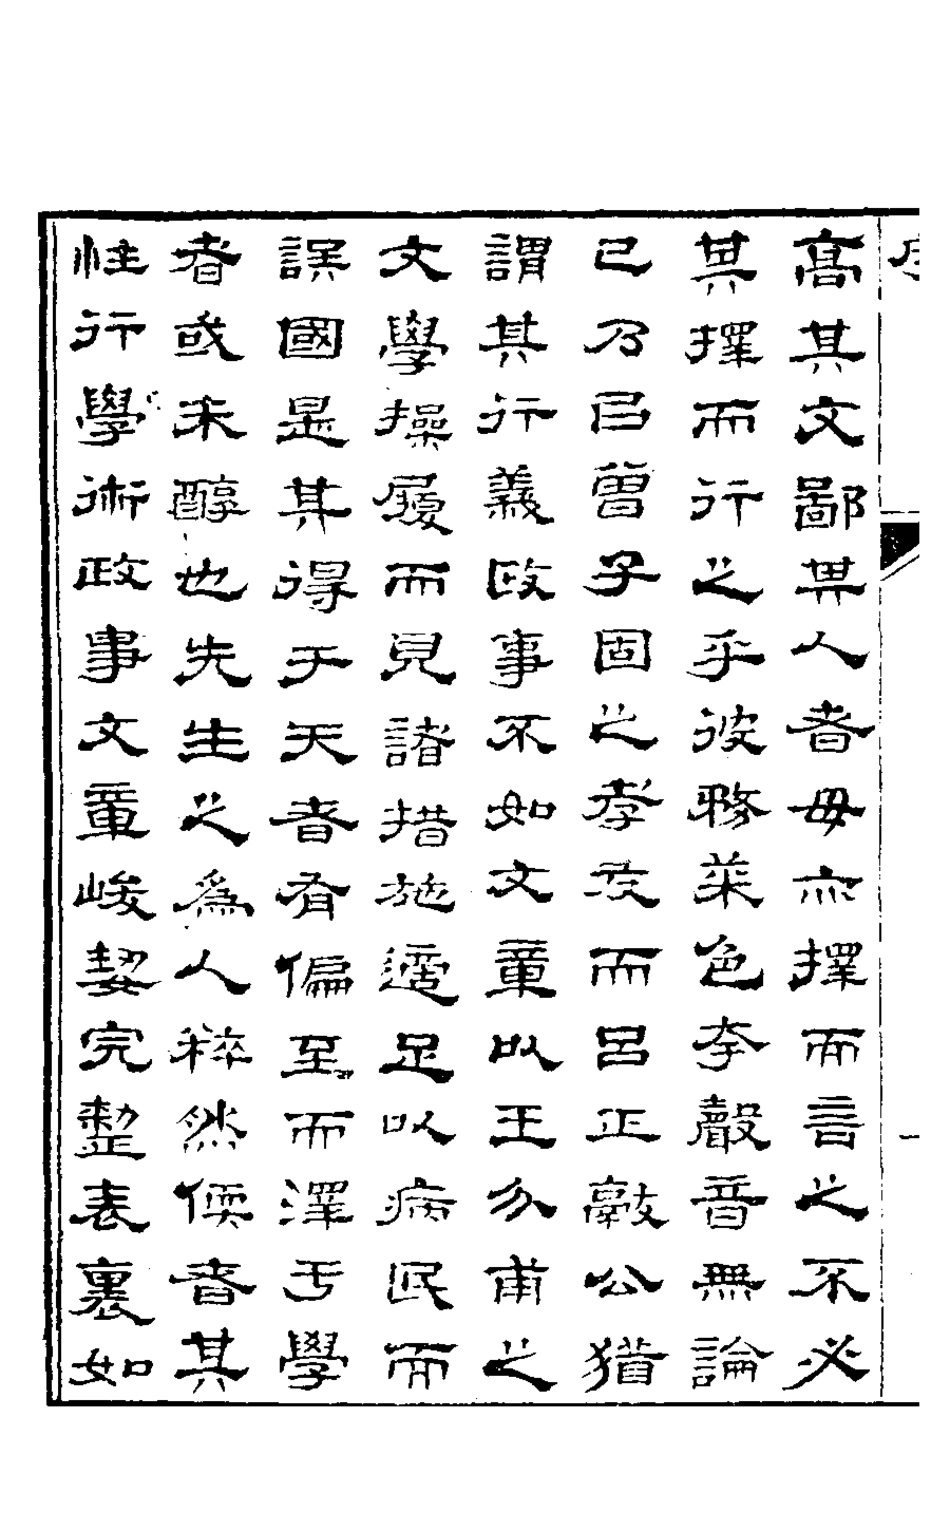 高其文鄙其人者毋亦擇而言之不必
其擇而行之乎彼務萊色李聲音無論
已乃曰曾子固之孝友而呂正獻公猶
謂其行義政事不如文章以王介甫之
文學操履而見諸措施適足以病民而
誤國是其得于天者有偏至而澤于學
者或未醇也先生之為人粹然儒者其
性行學術政事文章峻絜完整表裏如